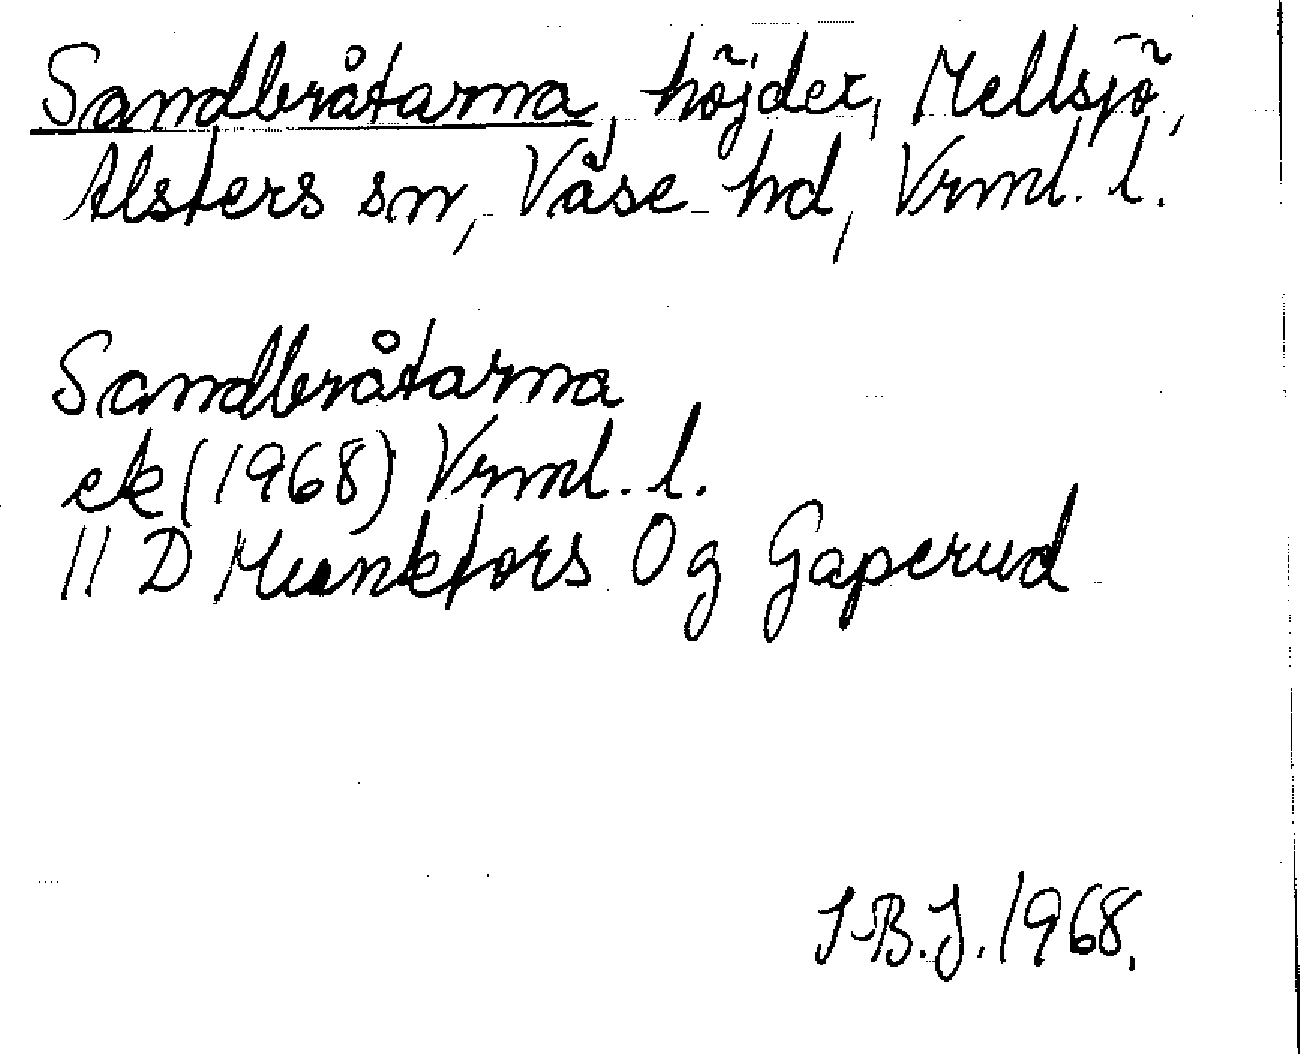 Sandbråtarna, höjder, Mellsjö,
Alsters sn, Väse hd, Vrml. l.
Sandbråtarna
ek (1968) Vrml. l.
11 D Munkfors 0 g Gaperud
I-B.J. 1968.